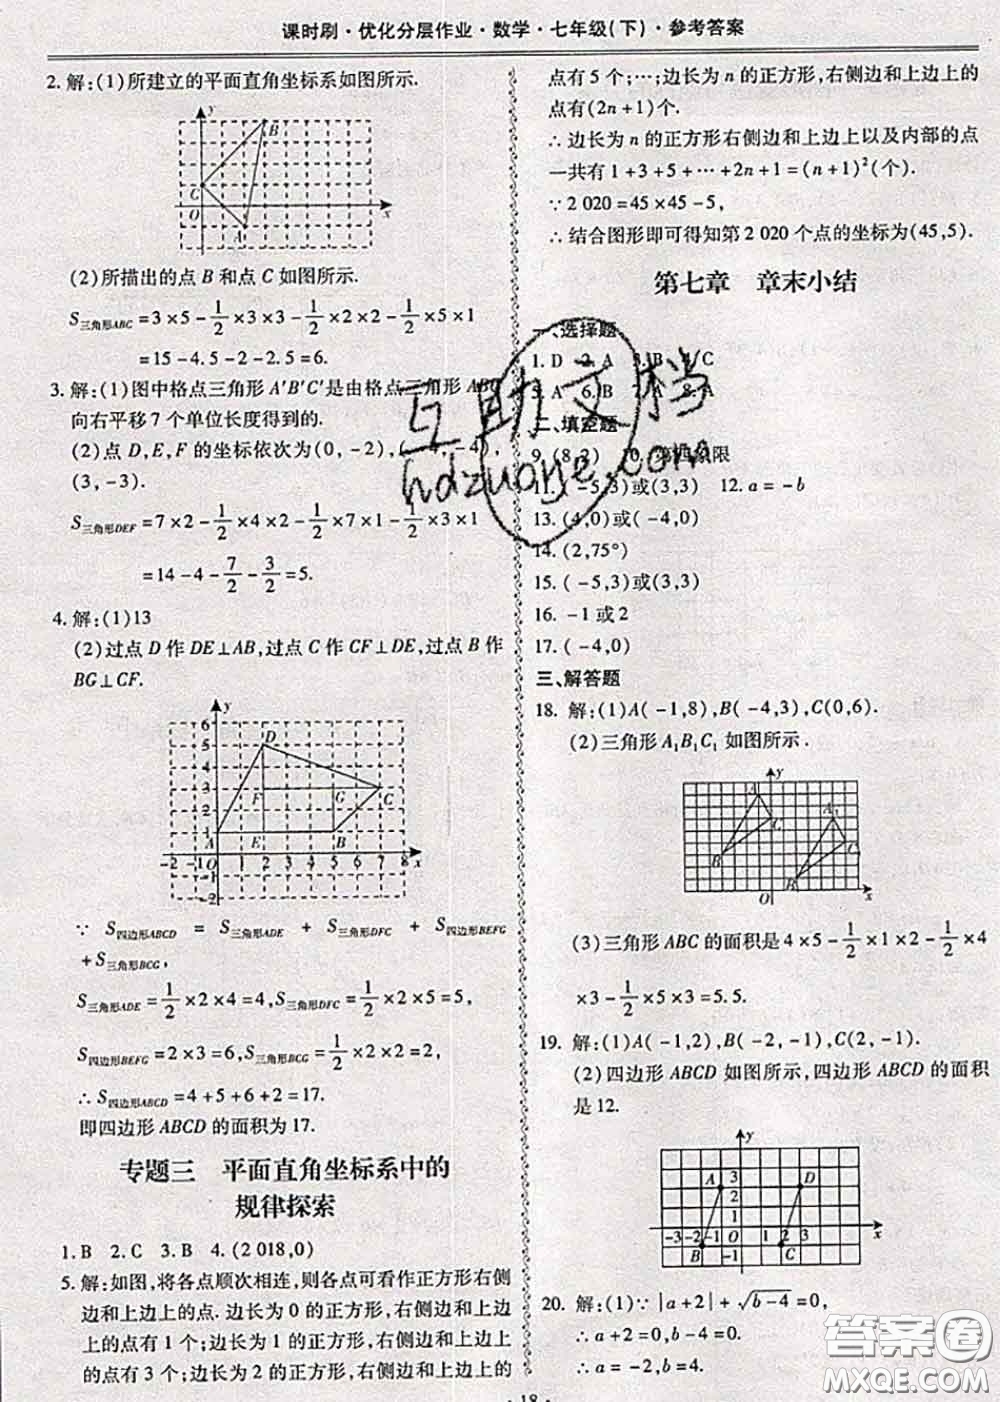 课时刷·优化分层作业·数学·七年级(下)·参考答案
2. 解:(1)所建立的平面直角坐标系如图所示.
y
B
C
O
A
x
(2)所描出的点 B 和点 C 如图所示.
S三角形ABC=3×5-1/2×3×3-1/2×5×1
=15-4.5-2-2.5=6.
3. 解:(1)图中格点三角形 A'B'C'是由格点三角形 ABC
向右平移 7 个单位长度得到的.
(2)点 D,E,F 的坐标依次为(0,-2),( ,-4),
(3,-3).
S三角形DEF=7×2-1/2×4×2-1/2×7×1-1/2×3×1
=14-4-7/2-3/2=5.
4. 解:(1)13
(2)过点 D 作 DE⊥AB,过点 C 作 CF⊥DE,过点 B 作
BG⊥CF.
y
6
5
4
3
2
1
D
F
G
C
A
E
B
-2 -1 O 1 2 3 4 5 6 7 8 x
-1
-2
∵ S四边形ABCD = S三角形ADE + S三角形DFC + S四边形BEFG
+S三角形BCG,
S三角形ADE=1/2×2×4=4,S三角形DFC=1/2×2×5=5,
S四边形BEFG=2×3=6,S三角形BCG=1/2×2×2=2,
∴S四边形ABCD=4+5+6+2=17.
即四边形 ABCD 的面积为 17.
专题三 平面直角坐标系中的
规律探索
1. B 2. C 3. B 4. (2 018,0)
5. 解:如图,将各点顺次相连,则各点可看作正方形右侧
边和上边上的点. 边长为 0 的正方形,右侧边和上边
上的点有 1 个;边长为 1 的正方形,右侧边和上边上
的点有 3 个;边长为 2 的正方形,右侧边和上边上的
点有 5 个;…;边长为 n 的正方形,右侧边和上边上的
点有(2n+1)个.
∴边长为 n 的正方形右侧边和上边上以及内部的点
一共有 1+3+5+…+2n+1=(n+1)²(个).
∵2 020=45×45-5,
∴结合图形即可得知第 2 020 个点的坐标为(45,5).
第七章 章末小结
一、选择题
1. D 2. A 3. B 4. C
5. A 6. B 8. A
二、填空题
9. (8,2) 10. 第四象限
11. (-5,3)或(3,3) 12. a=-b
13. (4,0)或(-4,0)
14. (2,75°)
15. (-5,3)或(3,3)
16. -1或2
17. (-4,0)
三、解答题
18. 解:(1)A(-1,8),B(-4,3),C(0,6).
(2)三角形 A₁B₁C₁ 如图所示.
y
A
C
B
A₁
C₁
B₁
O
x
(3)三角形 ABC 的面积是 4×5-1/2×1×2-1/2×4
×3-1/2×5×3=5.5.
19. 解:(1)A(-1,2),B(-2,-1),C(2,-1).
(2)四边形 ABCD 如图所示,四边形 ABCD 的面积
是 12.
y
A
3
D
2
1
-3 -2 -1 O 1 2 3 x
B
-1
C
20. 解:(1)∵|a+2|+√(b-4)=0,
∴a+2=0,b-4=0.
∴a=-2,b=4.
·18·
互助文档
hdzuoye.com
答案圈
MXQE.COM